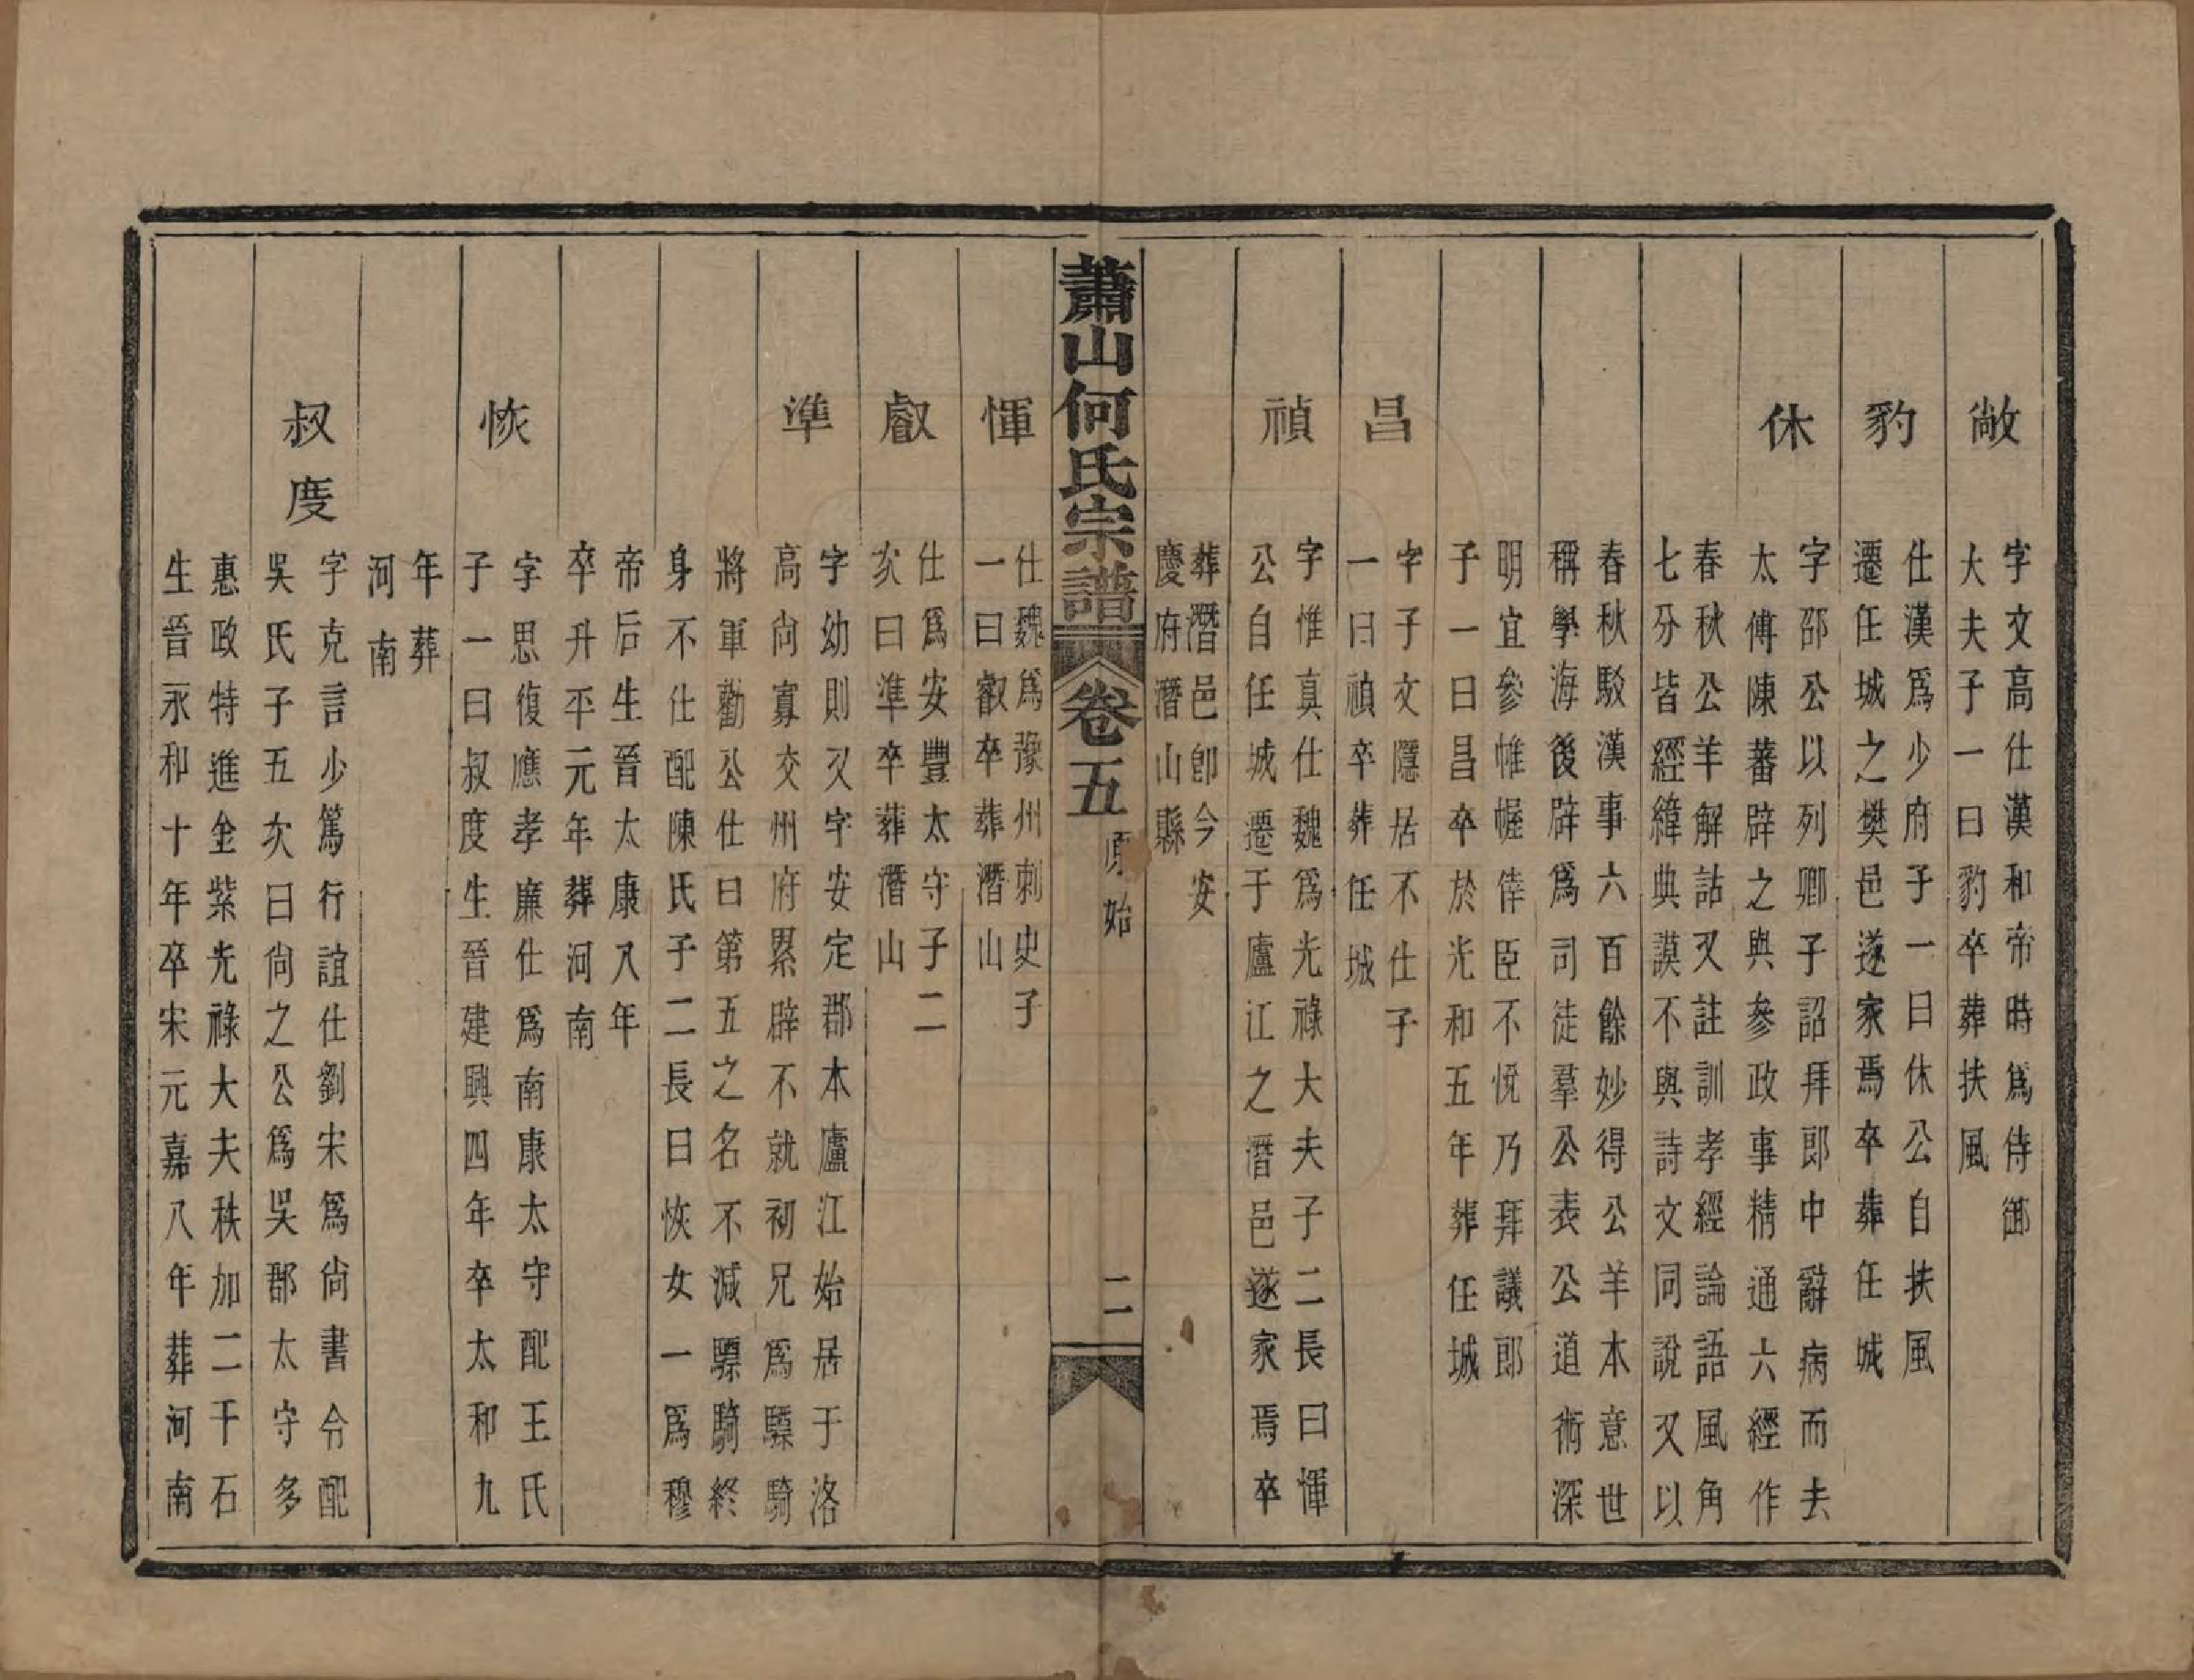 敞
字文高仕漢和帝時爲侍御
大夫子一曰豹卒葬扶風
豹
仕漢爲少府子一曰休公自扶風
遷任城之樊邑遂家焉卒葬任城
休
字邵公以列卿子詔拜郎中辭病而去
太傅陳蕃辟之與參政事精通六經作
春秋公羊解詁又註訓孝經論語風角
七分皆經緯典謨不與詩文同說又以
春秋駁漢事六百餘妙得公羊本意世
稱學海後辟爲司徒羣公表公道術深
明宜參帷幄倖臣不悅乃拜議郎
子一曰昌卒於光和五年葬任城
昌
字子文隱居不仕子
一曰禎卒葬任城
禎
字惟真仕魏爲光祿大夫子二長曰惲
公自任城遷于廬江之潛邑遂家焉卒
葬潛邑卽今安
慶府潛山縣
蕭山何氏宗譜 卷五 原始 二
惲
仕魏爲豫州刺史子
一曰叡卒葬潛山
叡
仕爲安豐太守子二
次曰準卒葬潛山
準
字幼則又字安定郡本廬江始居于洛
高尙寡交州府累辟不就初兄爲驃騎
將軍勸公仕曰第五之名不減驃騎終
身不仕配陳氏子二長曰恢女一爲穆
帝后生晉太康八年
卒升平元年葬河南
恢
字思復應孝廉仕爲南康太守配王氏
子一曰叔度生晉建興四年卒太和九
年葬
河南
叔度
字克言少篤行誼仕劉宋爲尙書令配
吳氏子五次曰尙之公爲吳郡太守多
惠政特進金紫光祿大夫秩加二千石
生晉永和十年卒宋元嘉八年葬河南